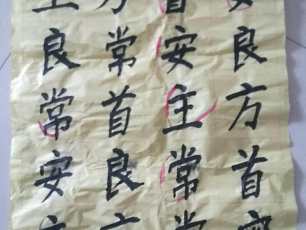 良方首
首安主常常
方常首良
主良常安